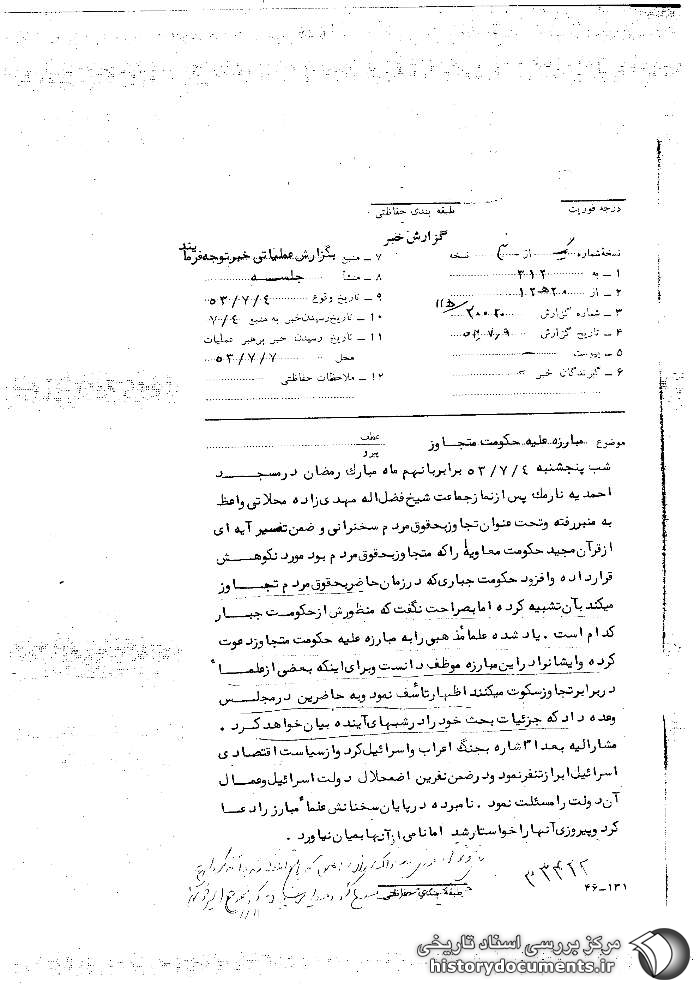 درجه فوریت
طبقه بندی حفاظتی
گزارش خبر
نسخه شماره یک از نسخه
۱ ـ به ۳۱۲
۲ ـ از ۲۰ﻫ۱۲
۳ ـ شماره گزارش ۲۰۰۲۰
۴ ـ تاریخ گزارش ۵۳/۷/۹
۵ ـ پیوست
۶ ـ گیرندگان خبر
۷ ـ منبع بگزارش عملیاتی خبر توجه فرمایند
۸ ـ منشأ جلسه
۹ ـ تاریخ وقوع ۵۳/۷/۴
۱۰ ـ تاریخ رسیدن خبر به منبع ۷/۴
۱۱ ـ تاریخ رسیدن خبر برهبر عملیات
محل ۵۳/۷/۷
۱۲ ـ ملاحظات حفاظتی
موضوع مبارزه علیه حکومت متجاوز
عطف
پیرو
شب پنجشنبه ۵۳/۷/۴ برابر بانهم ماه مبارك رمضان در مسجد
احمدیه نارمك پس از نماز جماعت شیخ فضل اله مهدی زاده محلاتی واعظ
به منبر رفته و تحت عنوان تجاوز بحقوق مردم سخنرانی و ضمن تفسیر آیه ای
از قرآن مجید حکومت معاویه را که متجاوز بحقوق مردم بود مورد نکوهش
قرار داده و افزود حکومت جباری که در زمان حاضر بحقوق مردم تجاوز
میکند بآن تشبیه کرده اما بصراحت نگفت که منظورش از حکومت جبار
کدام است . یاد شده علما مذهبی را به مبارزه علیه حکومت متجاوز دعوت
کرده و ایشانرا در این مبارزه موظف دانست و برای اینکه بعضی از علماء
در برابر تجاوز سکوت میکنند اظهار تأسف نمود و به حاضرین در مجلس
وعده داد که جزئیات بحث خود را در شبهای آینده بیان خواهد کرد .
مشارالیه بعدا اشاره بجنگ اعراب و اسرائیل کرد و از سیاست اقتصادی
اسرائیل ابراز تنفر نمود و در ضمن نفرین اضمحلال دولت اسرائیل و عمال
آن دولت را مسئلت نمود . نامبرده در پایان سخنانش علماء مبارز را دعا
کرد و پیروزی آنها را خواستار شد اما نامی از آنها بمیان نیاورد .
۳۳۴۲۲
طبقه بندی حفاظتی
۴۶-۱۳۱
مرکز بررسی اسناد تاریخی
historydocuments.ir